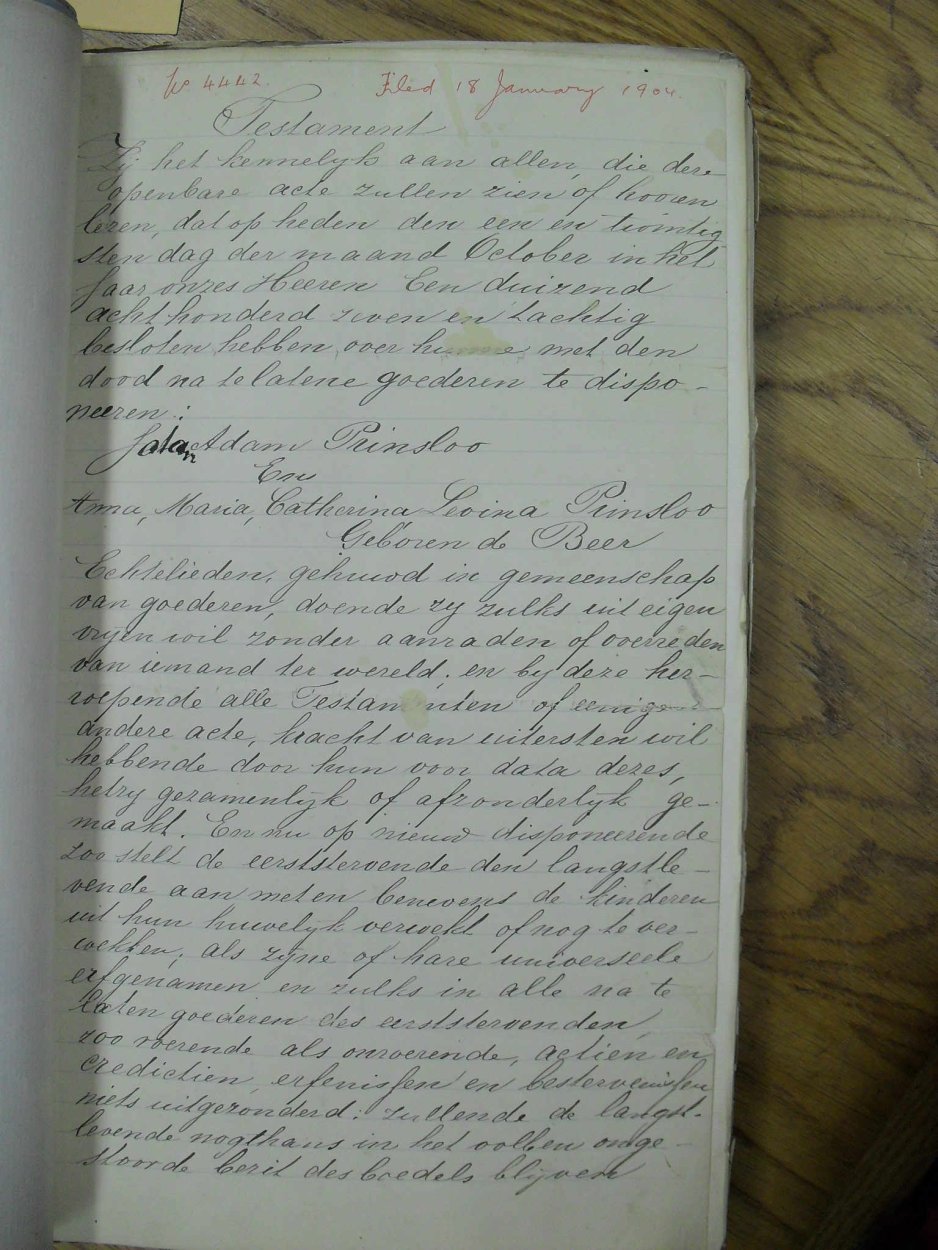 No 4442. Filed 18 January 1904.
Testament
Zij het kennelyk aan allen, die deze
openbare acte zullen zien of hooren
lezen, dat op heden den een en twintig
sten dag der maand October in het
Jaar onzes Heeren Een duizend
acht honderd zeven en tachtig
besloten hebben, over hunne met den
dood na te latene goederen te dispo-
neeren:
Adam Prinsloo
En
Anna, Maria, Catherina Levina Prinsloo
Geboren de Beer
Echtelieden, gehuwd in gemeenschap
van goederen, doende zy zulks uit eigen
vryen wil zonder aanraden of overreden
van iemand ter wereld; en by deze her-
roepende alle Testamenten of eenige
andere acte, kracht van uitersten wil
hebbende door hun voor data dezes,
hetzy gezamenlyk of afzonderlyk ge-
maakt. En nu op nieuw disponeerende
zoo stelt de eerststervende den langstle-
vende aan met en benevens de kinderen
uit hun huwelyk verwekt of nog te ver-
wekken, als zyne of hare universeele
erfgenamen en zulks in alle na te
laten goederen des eerststervenden,
zoo roerende als onroerende, actien en
credictien, erfenissen en bestervenissen
niets uitgezonderd: zullende de langst-
levende nogthans in het vollen onge-
stoorde bezit des boedels blijven